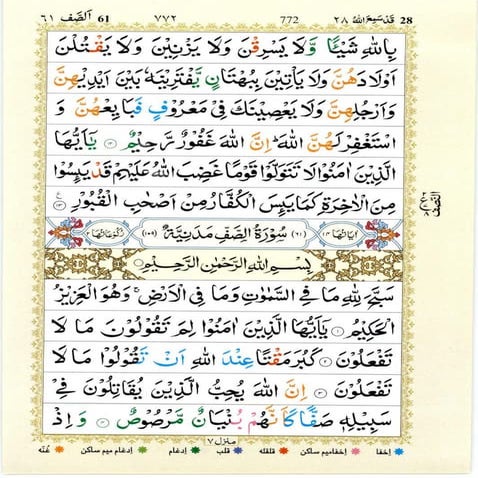 28 قد سمع الله ٢٨ 772 ٧٧٢ 61 الصف ٦١
بِاللّٰهِ شَيْـًٔا وَّلَا يَسْرِقْنَ وَلَا يَزْنِيْنَ وَلَا يَقْتُلْنَ
اَوْلَادَهُنَّ وَلَا يَاْتِيْنَ بِبُهْتَانٍ يَّفْتَرِيْنَهٗ بَيْنَ اَيْدِيْهِنَّ
وَاَرْجُلِهِنَّ وَلَا يَعْصِيْنَكَ فِيْ مَعْرُوْفٍ فَبَايِعْهُنَّ وَ
اسْتَغْفِرْ لَهُنَّ اللّٰهَ ؕ اِنَّ اللّٰهَ غَفُوْرٌ رَّحِيْمٌ ۝۱۲ يٰۤاَيُّهَا
الَّذِيْنَ اٰمَنُوْا لَا تَتَوَلَّوْا قَوْمًا غَضِبَ اللّٰهُ عَلَيْهِمْ قَدْ يَىِٕسُوْا
مِنَ الْاٰخِرَةِ كَمَا يَىِٕسَ الْكُفَّارُ مِنْ اَصْحٰبِ الْقُبُوْرِ ۝۱۳
اٰيَاتُهَا ١٤ (٦١) سُوْرَةُ الصَّفِّ مَدَنِيَّةٌ (١٠٩) رُكُوْعَاتُهَا ٢
بِسْمِ اللّٰهِ الرَّحْمٰنِ الرَّحِيْمِ
سَبَّحَ لِلّٰهِ مَا فِي السَّمٰوٰتِ وَمَا فِي الْاَرْضِ ۚ وَهُوَ الْعَزِيْزُ
الْحَكِيْمُ ۝۱ يٰۤاَيُّهَا الَّذِيْنَ اٰمَنُوْا لِمَ تَقُوْلُوْنَ مَا لَا
تَفْعَلُوْنَ ۝۲ كَبُرَ مَقْتًا عِنْدَ اللّٰهِ اَنْ تَقُوْلُوْا مَا لَا
تَفْعَلُوْنَ ۝۳ اِنَّ اللّٰهَ يُحِبُّ الَّذِيْنَ يُقَاتِلُوْنَ فِيْ
سَبِيْلِهٖ صَفًّا كَاَنَّهُمْ بُنْيَانٌ مَّرْصُوْصٌ ۝۴ وَاِذْ
منزل ٧
إخفا إخفاميم ساكن قلقله قلب إدغام إدغام ميم ساكن غنّه